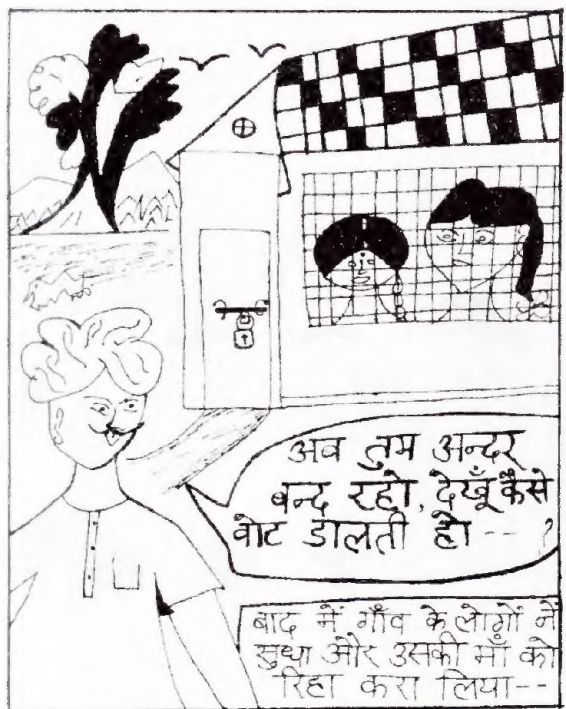 अब तुम अन्दर
बन्द रहो, देखूँ कैसे
वोट डालती हो -- ?
बाद में गाँव के लोगों ने
सुधा और उसकी माँ को
रिहा करा लिया--